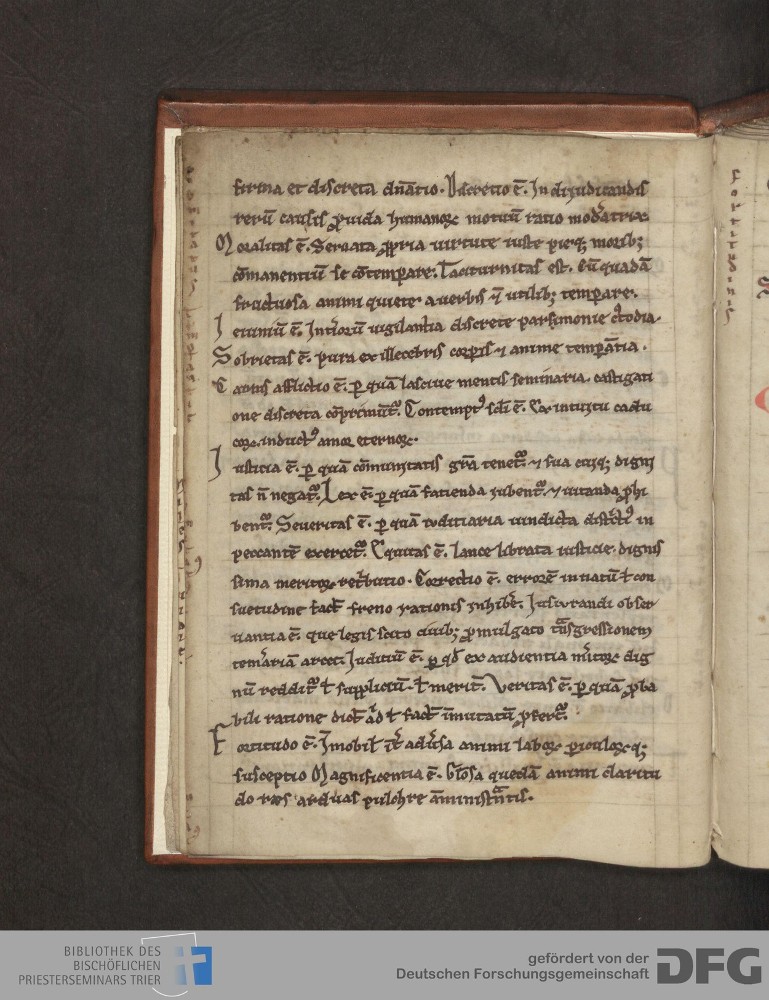 firma et discreta dn̄atio. Discretio ē. In diiudicandis
rerū causis ꝓuida humanoꝝ motuū ratio mod̓atrix.
Moralitas ē. Seruata ꝓpria uirtute iuste pieqꝫ moribꝫ
cōmanentiū se cōtemꝑare. Taciturnitas est. quadā
fructuosa animi quiete a uerbis utilibꝫ temꝑare.
Ieiuniū ē. Int̓iorū uigilantia discrete parsimonie c̓todia.
Sobrietas ē. pura ex illecebris corꝑis ⁊ anime temꝑātia.
Carnis afflictio ē. ꝑ quā lasciue mentis seminaria. castigati
one discreta cōprimūt᷑. Contemptꝰ sc̄li ē. Ex intuitu cadu
coꝝ. inductꝰ amor eternoꝝ.
Iusticia ē. ꝑ quā cōmunitatis gr̄a tenet᷑. ⁊ sua cuiqꝫ digni
tas n̄ negat᷑. Lex ē. ꝑ quā facienda iubent᷑. ⁊ uitanda ꝓhi
bent᷑. Seueritas ē. ꝑ quā uindicta in
peccantē exercet᷑. Equitas ē. lance librata iusticie. dignis
sima meritoꝝ ret̓butio. Correctio ē. errorē innatū ł con
suetudine fact̄ freno rationis inhibe̓. Iusiurandi obser
uantia ē. que legis scito ciuibꝫ ꝓmulgato tᷓnsgressionem
tem̓ariā arcet. Iuditiū ē. ꝑ qd̄ ex audientia m̓itoꝝ dig
nū reddit᷑ ł suppliciū. ł merit̄. Veritas ē. ꝑ quā ꝓba
bili ratione dict̄ ł fact̄ īmutatū ꝓfert᷑.
Fortitudo ē. Īmobil̓ īt̓ adu̓sa animi laboꝝ ꝑiculoꝝqꝫ
susceptio Magnificentia ē. gl̄osa quedā animi claritu
do res arduas pulchre āministrātis.
fortitudinis
BIBLIOTHEK DES
BISCHÖFLICHEN
PRIESTERSEMINARS TRIER
gefördert von der
Deutschen Forschungsgemeinschaft
DFG